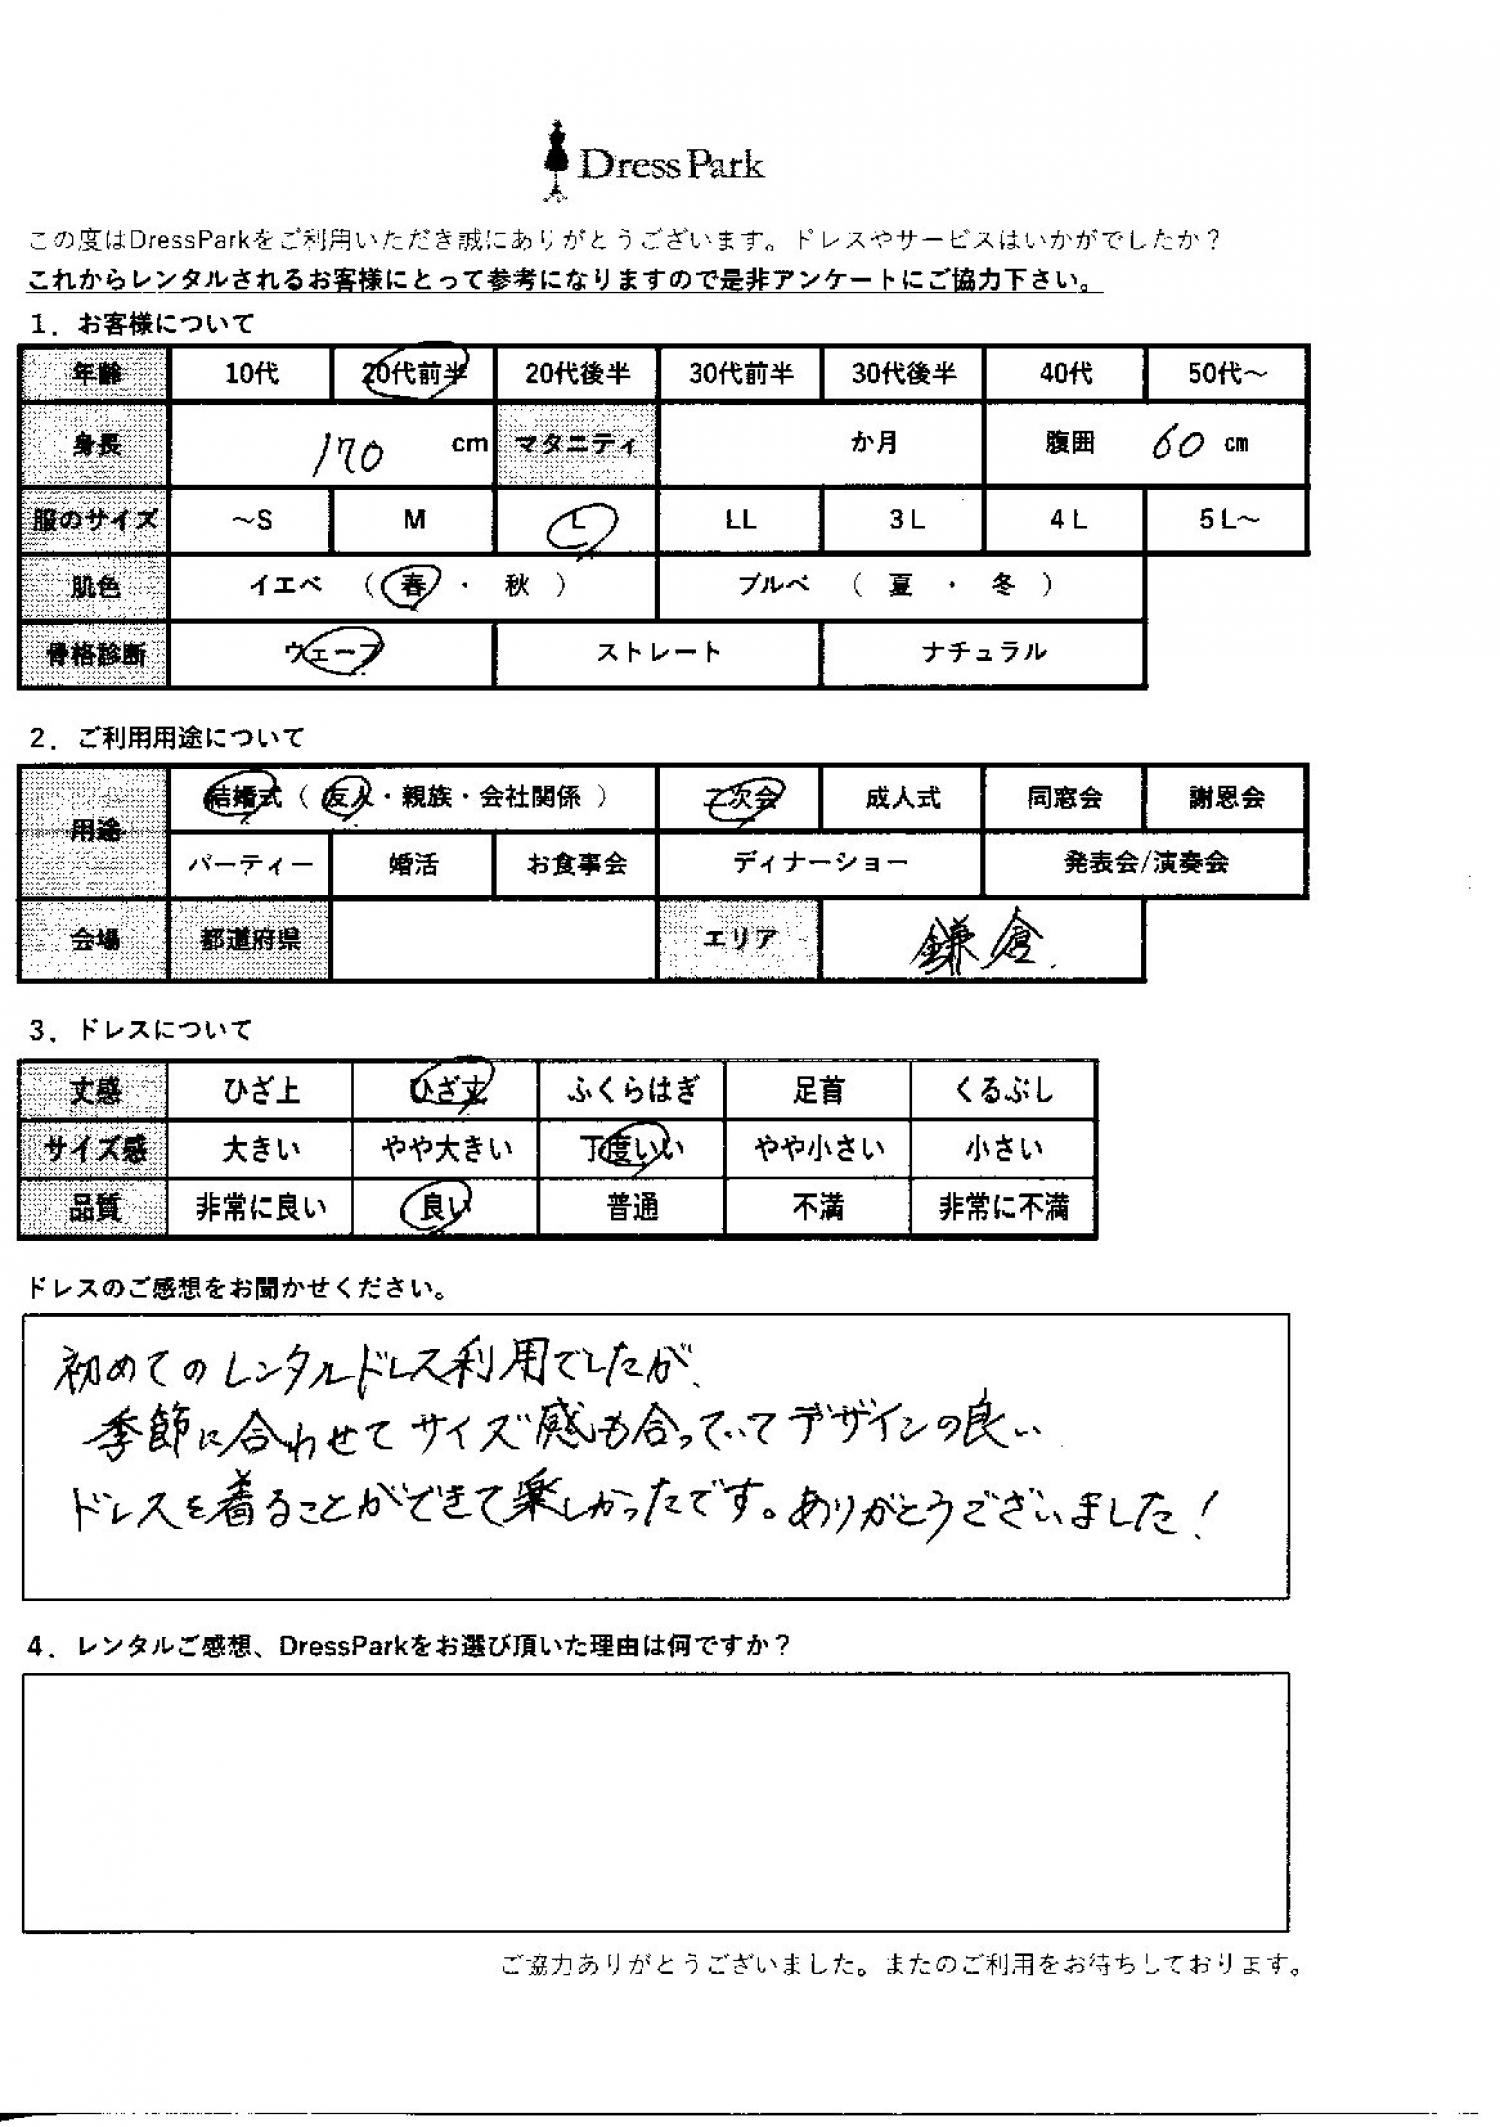 Dress Park
この度はDressParkをご利用いただき誠にありがとうございます。ドレスやサービスはいかがでしたか？
これからレンタルされるお客様にとって参考になりますので是非アンケートにご協力下さい。
1．お客様について
年齢 10代 20代前半 20代後半 30代前半 30代後半 40代 50代～
身長 170 cm マタニティ か月 腹囲 60 cm
服のサイズ ～S M L LL 3L 4L 5L～
肌色 イエベ （ 春 ・ 秋 ） ブルベ （ 夏 ・ 冬 ）
骨格診断 ウェーブ ストレート ナチュラル
2．ご利用用途について
用途 結婚式（ 友人・親族・会社関係 ） 二次会 成人式 同窓会 謝恩会
パーティー 婚活 お食事会 ディナーショー 発表会/演奏会
会場 都道府県 エリア 鎌倉
3．ドレスについて
丈感 ひざ上 ひざ丈 ふくらはぎ 足首 くるぶし
サイズ感 大きい やや大きい 丁度いい やや小さい 小さい
品質 非常に良い 良い 普通 不満 非常に不満
ドレスのご感想をお聞かせください。
初めてのレンタルドレス利用でしたが、
季節に合わせてサイズ感も合っていてデザインの良い
ドレスを着ることができて楽しかったです。ありがとうございました！
4．レンタルご感想、DressParkをお選び頂いた理由は何ですか？
ご協力ありがとうございました。またのご利用をお待ちしております。